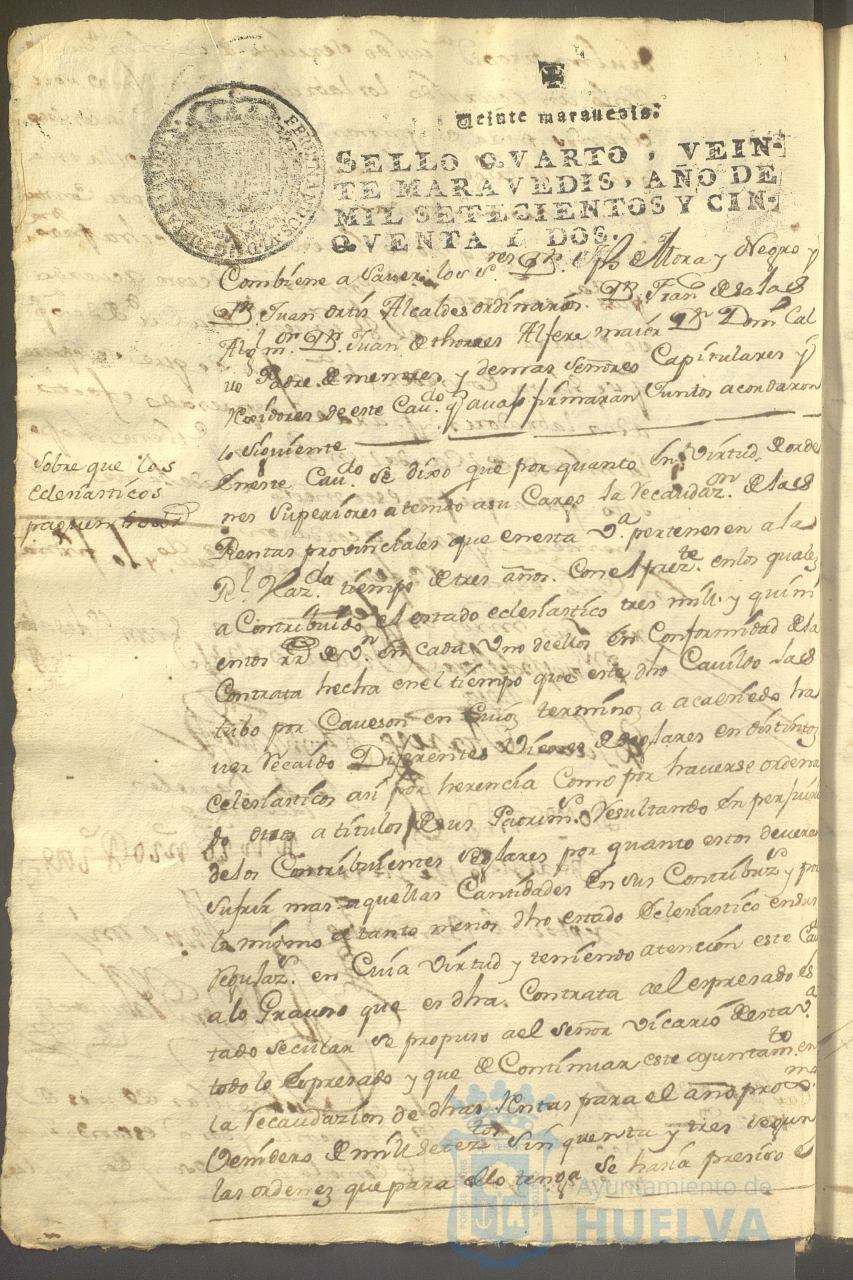 Veinte maravedis.
SELLO QVARTO, VEIN-
TE MARAVEDIS, AÑO DE
MIL SETECIENTOS Y CIN-
QVENTA Y DOS.
Combiene a Saver los S.res Dn. Mora y Negro y
Dn Juan ortis Alcaldes ordinarios. Dn. Fran.co de salas
Alg.l m.or Dn. Juan de thorres Alferez maior Dn Dom.o Cal
vo Padre de menores y demas señores Capitulares y
Rexidores de este Cav.do q avajo firmaran Juntos acordaron
lo siguiente
Sobre que los
Eclesiasticos
paguen
En este Cav.do se dixo que por quanto en virtud de orde
nes superiores a tenido a su Cargo la Recaudaz.on de las
Rentas provinciales que en esta V.a pertenesen a la
R.l Haz.da tiempo de tres años. Con el prez.te en los quales
a Contribuido el estado eclesiastico tres mill y quini
entos rr.s de v.n en cada uno de ellos en Conformidad de la
Contrata hecha en el tiempo que este dho Cavildo las
tubo por Caveson en Cuio termino a acaesido ha
ver recaido Diferentes Vienes Seglares en distintos
Eclesiasticos asi por herencia Como por haverse ordena
do otros a titulos de sus Patrim.s Resultando en perjuicio
de los Contribuientes Seglares por quanto estos deveran
sufrir mas aquellas Cantidades en sus Contribuz.s y por
lo mismo de tanto menos dho estado Eclesiastico en las
Regulaz.s en Cuia Virtud y teniendo atencion este Cav.do
a lo Gravoso que es dha. Contrata a el expresado es
tado secular se propuso a el señor vicario de esta V.a
todo lo Expresado y que de Continuar este ayuntam.to en
la recaudazion de dhas Rentas para el año pro.mo
Venidero de mill setez.tos Sinquenta y tres segun
las ordenes que para ello tenga se hasia presiso el
Ayuntamiento de
HUELVA